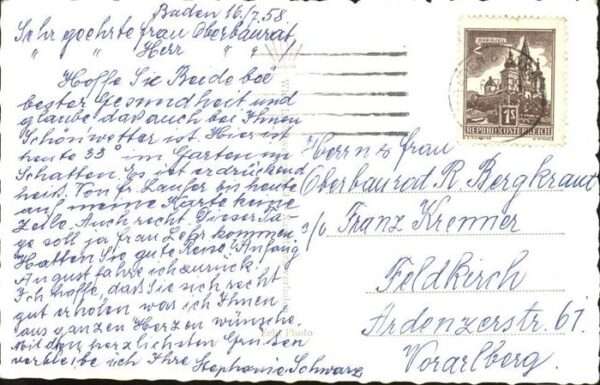 Baden 16/7. 58.
Sehr geehrte Frau Oberbaurat,
" " Herr " !
Hoffe Sie Beide bei
bester Gesundheit und
glaube das auch bei Ihnen
Schönwetter ist. Hier ist
heute 33° im Garten im
Schatten. Es ist erdrückend
heiß. Von Fr. Laufer bis heute
auf meine Karte keine
Zeile. Auch recht. Dieser Ta-
ge soll ja Frau Lehr kommen.
Hatten Sie gute Reise? Anfang
August fahre ich zurück.
Ich hoffe, daß Sie sich recht
gut erholen was ich Ihnen
aus ganzen Herzen wünsche.
Mit den herzlichsten Grüßen
verbleibe ich Ihre Stephanie Schwarz
1S
REPUBLIK ÖSTERREICH
Herrn & Frau
Oberbaurat R. Bergkraut
c/o Franz Krenner
Feldkirch
Ardenzerstr. 61.
Vorarlberg.
Photo